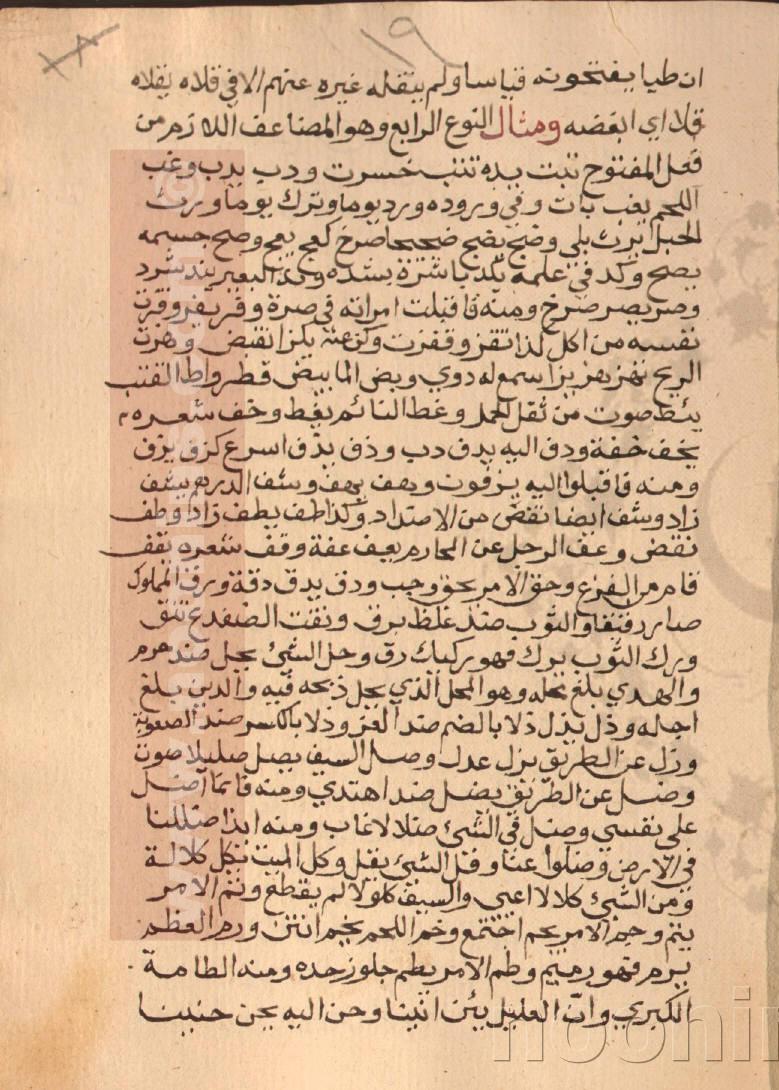 ١٩
ان طيا يفتحونه قياسا ولم ينقله غيره عنهم الا في قلاه يقلاه
قلا اي ابغضه ومثال النوع الرابع وهو المضاعف اللازم من
فعل المفتوح تبت يده تتب خسرت ودب يدب وغب
اللحم يغب بات وفي وروده ورد يوما وترك يوما ورث
الحبل يرث بلي وضج يضج ضجيجا صرخ كعج يعج وصح جسمه
يصح وكد في علمه يكد باشره بشده وند البعير يند شرد
وصر يصر صرخ ومنه فاقبلت امراته في صرة وفر يفر وقزت
نفسه من اكل كذا تقز وقفزت وكز عنه يكز انقبض وهزت
الريح تهز هزيزا سمع له دوي وبض الما يبض قطر واط القتب
يئط صوت من ثقل الحمل وغط النائم يغط وخف شعره
يخف خفة ودف اليه يدف دب وذف يذف اسرع كزف يزف
ومنه فاقبلوا اليه يزفون وهف يهف وشف الدرهم يشف
زاد وشف ايضا نقص من الاضداد وكذا طف يطف زاد وطف
نقص وعف الرجل عن المحارم يعف عفة وقف شعره يقف
قام من الفزع وحق الامر يحق وجب ودق يدق دقة ورق المملوك
صار رقيقا والثوب ضد غلظ يرق ونقت الضفدع تنق
ورك الثوب يرك فهو ركيك رق وحل الشئ يحل ضد حرم
والهدي بلغ محله وهو المحل الذي يحل ذبحه فيه والدين بلغ
اجله وذل يذل ذلا بالضم ضد العز وذلا بالكسر ضد الصعوبة
وزل عن الطريق يزل عدل وصل السيف يصل صليلا صوت
وضل عن الطريق يضل ضد اهتدي ومنه فانما اضل
علي نفسي وضل في الشئ ضلالا غاب ومنه ائذا ضللنا
في الارض وضلوا عنا وقل الشئ يقل وكل الميت يكل كلالة
ومن الشئ كلالا اعيي والسيف كلولا لم يقطع وتم الامر
يتم وجم الامر يجم اجتمع وخم اللحم يخم انتن ورم العظم
يرم فهو رميم وطم الامر يطم جاوز حده ومنه الطامة
الكبري وان العليل يئن انينا وحن اليه يحن حنينا
noonin